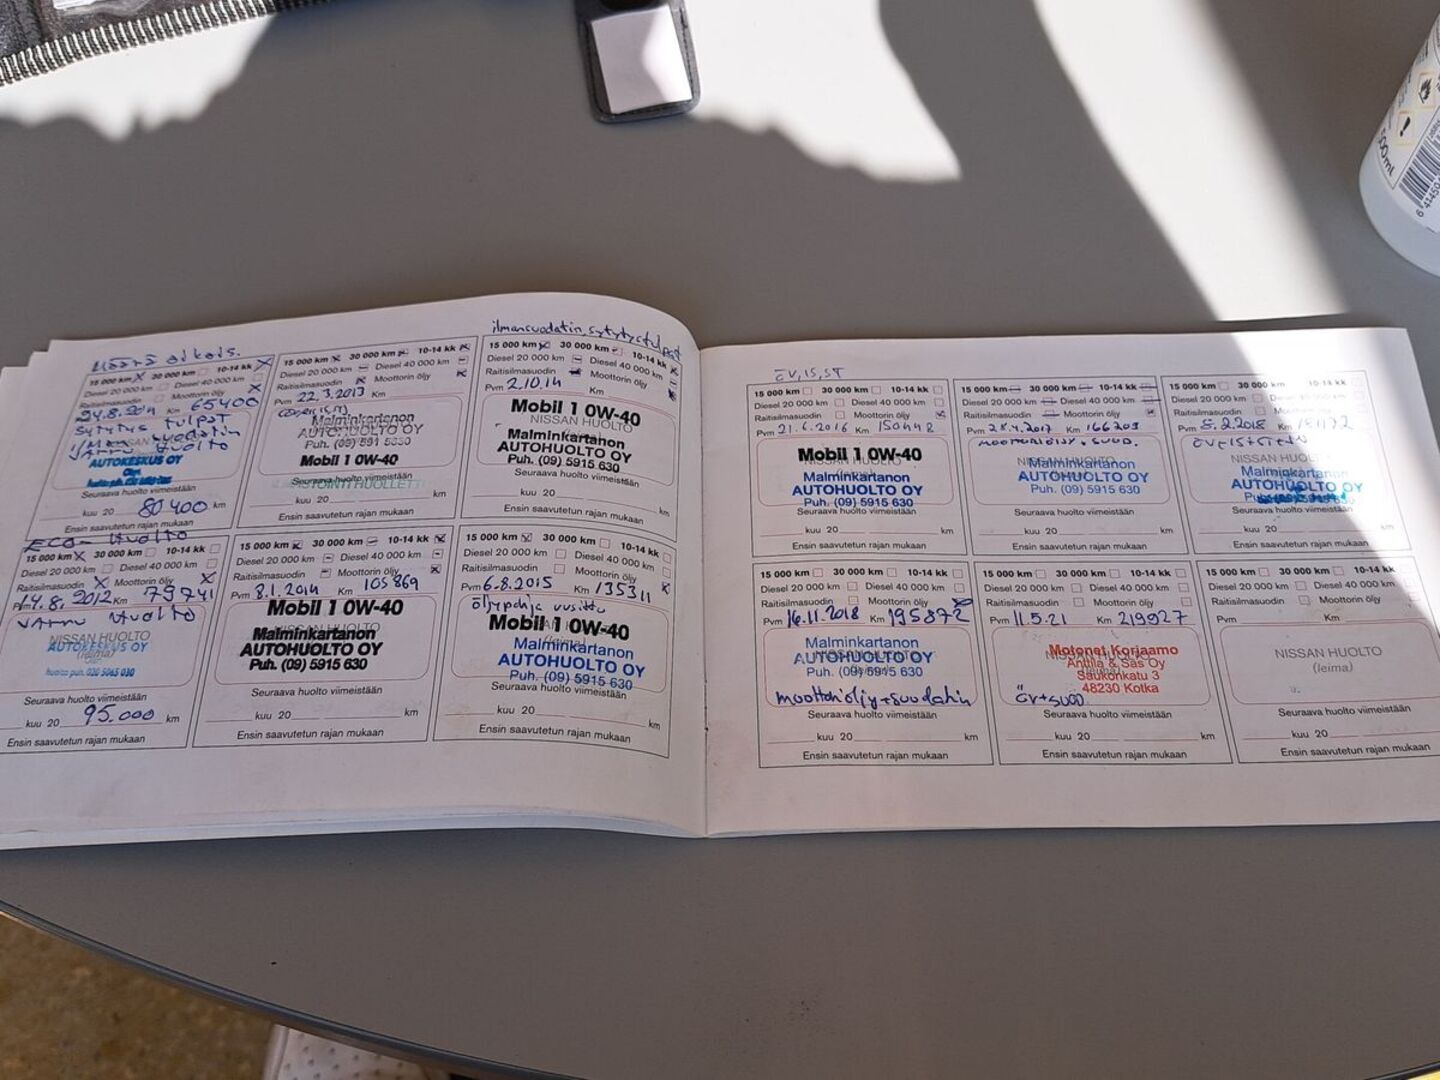 15 000 km 30 000 km 10-14 kk
Diesel 20 000 km Diesel 40 000 km
Raitisilmasuodin Moottorin öljy
24.8.2011 Km 65400
Sytytys tulpat
suodatin
huolto
AUTOKESKUS OY
Seuraava huolto viimeistään
kuu 20 80 400 km
Ensin saavutetun rajan mukaan
15 000 km 30 000 km 10-14 kk
Diesel 20 000 km Diesel 40 000 km
Raitisilmasuodin Moottorin öljy
Pvm 22.3.2013 Km
Malminkartanon
AUTOHUOLTO OY
Puh. (09) 591 5630
Mobil 1 0W-40
Seuraava huolto viimeistään
kuu 20 km
Ensin saavutetun rajan mukaan
ilmansuodatin, sytytystulpat
15 000 km 30 000 km 10-14 kk
Diesel 20 000 km Diesel 40 000 km
Raitisilmasuodin Moottorin öljy
Pvm 2.10.14 Km
Mobil 1 0W-40
NISSAN HUOLTO
Malminkartanon
AUTOHUOLTO OY
Puh. (09) 5915 630
Seuraava huolto viimeistään
kuu 20 km
Ensin saavutetun rajan mukaan
ECO-Huolto
15 000 km 30 000 km 10-14 kk
Diesel 20 000 km Diesel 40 000 km
Raitisilmasuodin Moottorin öljy
Pvm 14.8.2012 Km 79741
Huolto
NISSAN HUOLTO
(leima)
AUTOKESKUS OY
Seuraava huolto viimeistään
kuu 20 95.000 km
Ensin saavutetun rajan mukaan
15 000 km 30 000 km 10-14 kk
Diesel 20 000 km Diesel 40 000 km
Raitisilmasuodin Moottorin öljy
Pvm 8.1.2014 Km 105869
Mobil 1 0W-40
Malminkartanon
AUTOHUOLTO OY
Puh. (09) 5915 630
Seuraava huolto viimeistään
kuu 20 km
Ensin saavutetun rajan mukaan
15 000 km 30 000 km 10-14 kk
Diesel 20 000 km Diesel 40 000 km
Raitisilmasuodin Moottorin öljy
Pvm 6.8.2015 Km 135311
öljypohja uusittu
Mobil 1 0W-40
Malminkartanon
AUTOHUOLTO OY
Puh. (09) 5915 630
Seuraava huolto viimeistään
kuu 20 km
Ensin saavutetun rajan mukaan
ÖV, IS, ST
15 000 km 30 000 km 10-14 kk
Diesel 20 000 km Diesel 40 000 km
Raitisilmasuodin Moottorin öljy
Pvm 21.6.2016 Km 150448
Mobil 1 0W-40
NISSAN HUOLTO
Malminkartanon
AUTOHUOLTO OY
Puh. (09) 5915 630
Seuraava huolto viimeistään
kuu 20 km
Ensin saavutetun rajan mukaan
15 000 km 30 000 km 10-14 kk
Diesel 20 000 km Diesel 40 000 km
Raitisilmasuodin Moottorin öljy
Pvm 28.4.2017 Km 166209
moottoriöljy + suod.
NISSAN HUOLTO
Malminkartanon
AUTOHUOLTO OY
Puh. (09) 5915 630
Seuraava huolto viimeistään
kuu 20 km
Ensin saavutetun rajan mukaan
15 000 km 30 000 km 10-14 kk
Diesel 20 000 km Diesel 40 000 km
Raitisilmasuodin Moottorin öljy
Pvm 8.2.2018 Km
NISSAN HUOLTO
Malminkartanon
AUTOHUOLTO OY
Seuraava huolto viimeistään
kuu 20 km
Ensin saavutetun rajan mukaan
15 000 km 30 000 km 10-14 kk
Diesel 20 000 km Diesel 40 000 km
Raitisilmasuodin Moottorin öljy
Pvm 16.11.2018 Km 195872
Malminkartanon
NISSAN HUOLTO
AUTOHUOLTO OY
Puh. (09) 5915 630
moottoriöljy+suodatin
Seuraava huolto viimeistään
kuu 20 km
Ensin saavutetun rajan mukaan
15 000 km 30 000 km 10-14 kk
Diesel 20 000 km Diesel 40 000 km
Raitisilmasuodin Moottorin öljy
Pvm 11.5.21 Km 219927
Motonet Korjaamo
NISSAN HUOLTO
Anttila & Sas Oy
Saukonkatu 3
48230 Kotka
ÖV+SUOD
Seuraava huolto viimeistään
kuu 20 km
Ensin saavutetun rajan mukaan
15 000 km 30 000 km 10-14 kk
Diesel 20 000 km Diesel 40 000 km
Raitisilmasuodin Moottorin öljy
Pvm Km
NISSAN HUOLTO
(leima)
Seuraava huolto viimeistään
kuu 20 km
Ensin saavutetun rajan mukaan
500ml